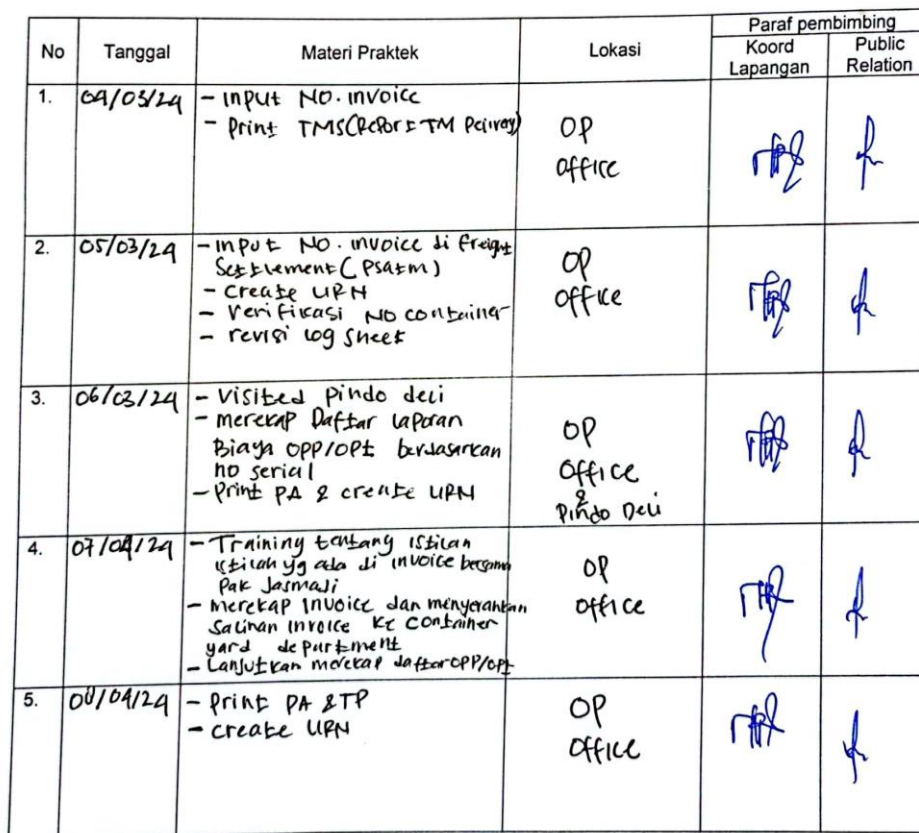 No Tanggal Materi Praktek Lokasi Paraf pembimbing
Koord Lapangan Public Relation
1. 04/03/24 - Input NO. invoice
- Print TMS (Report TM Delivery)
OP
office
2. 05/03/24 - Input NO. invoice di freight
Settlement (PSATM)
- Create URN
- Verifikasi NO container
- revisi log sheet
OP
office
3. 06/03/24 - Visited Pindo deli
- merekap Daftar laporan
Biaya OPP/OPt berdasarkan
no serial
- Print PA & create URN
OP
office
&
Pindo Deli
4. 07/04/24 - Training tentang istilah
istilah yg ada di invoice bersama
Pak Jasmadi
- merekap Invoice dan menyerahkan
Salinan invoice ke container
yard department
- Lanjutkan merekap daftar OPP/OPt
OP
office
5. 08/04/24 - Print PA & TP
- create URN
OP
office